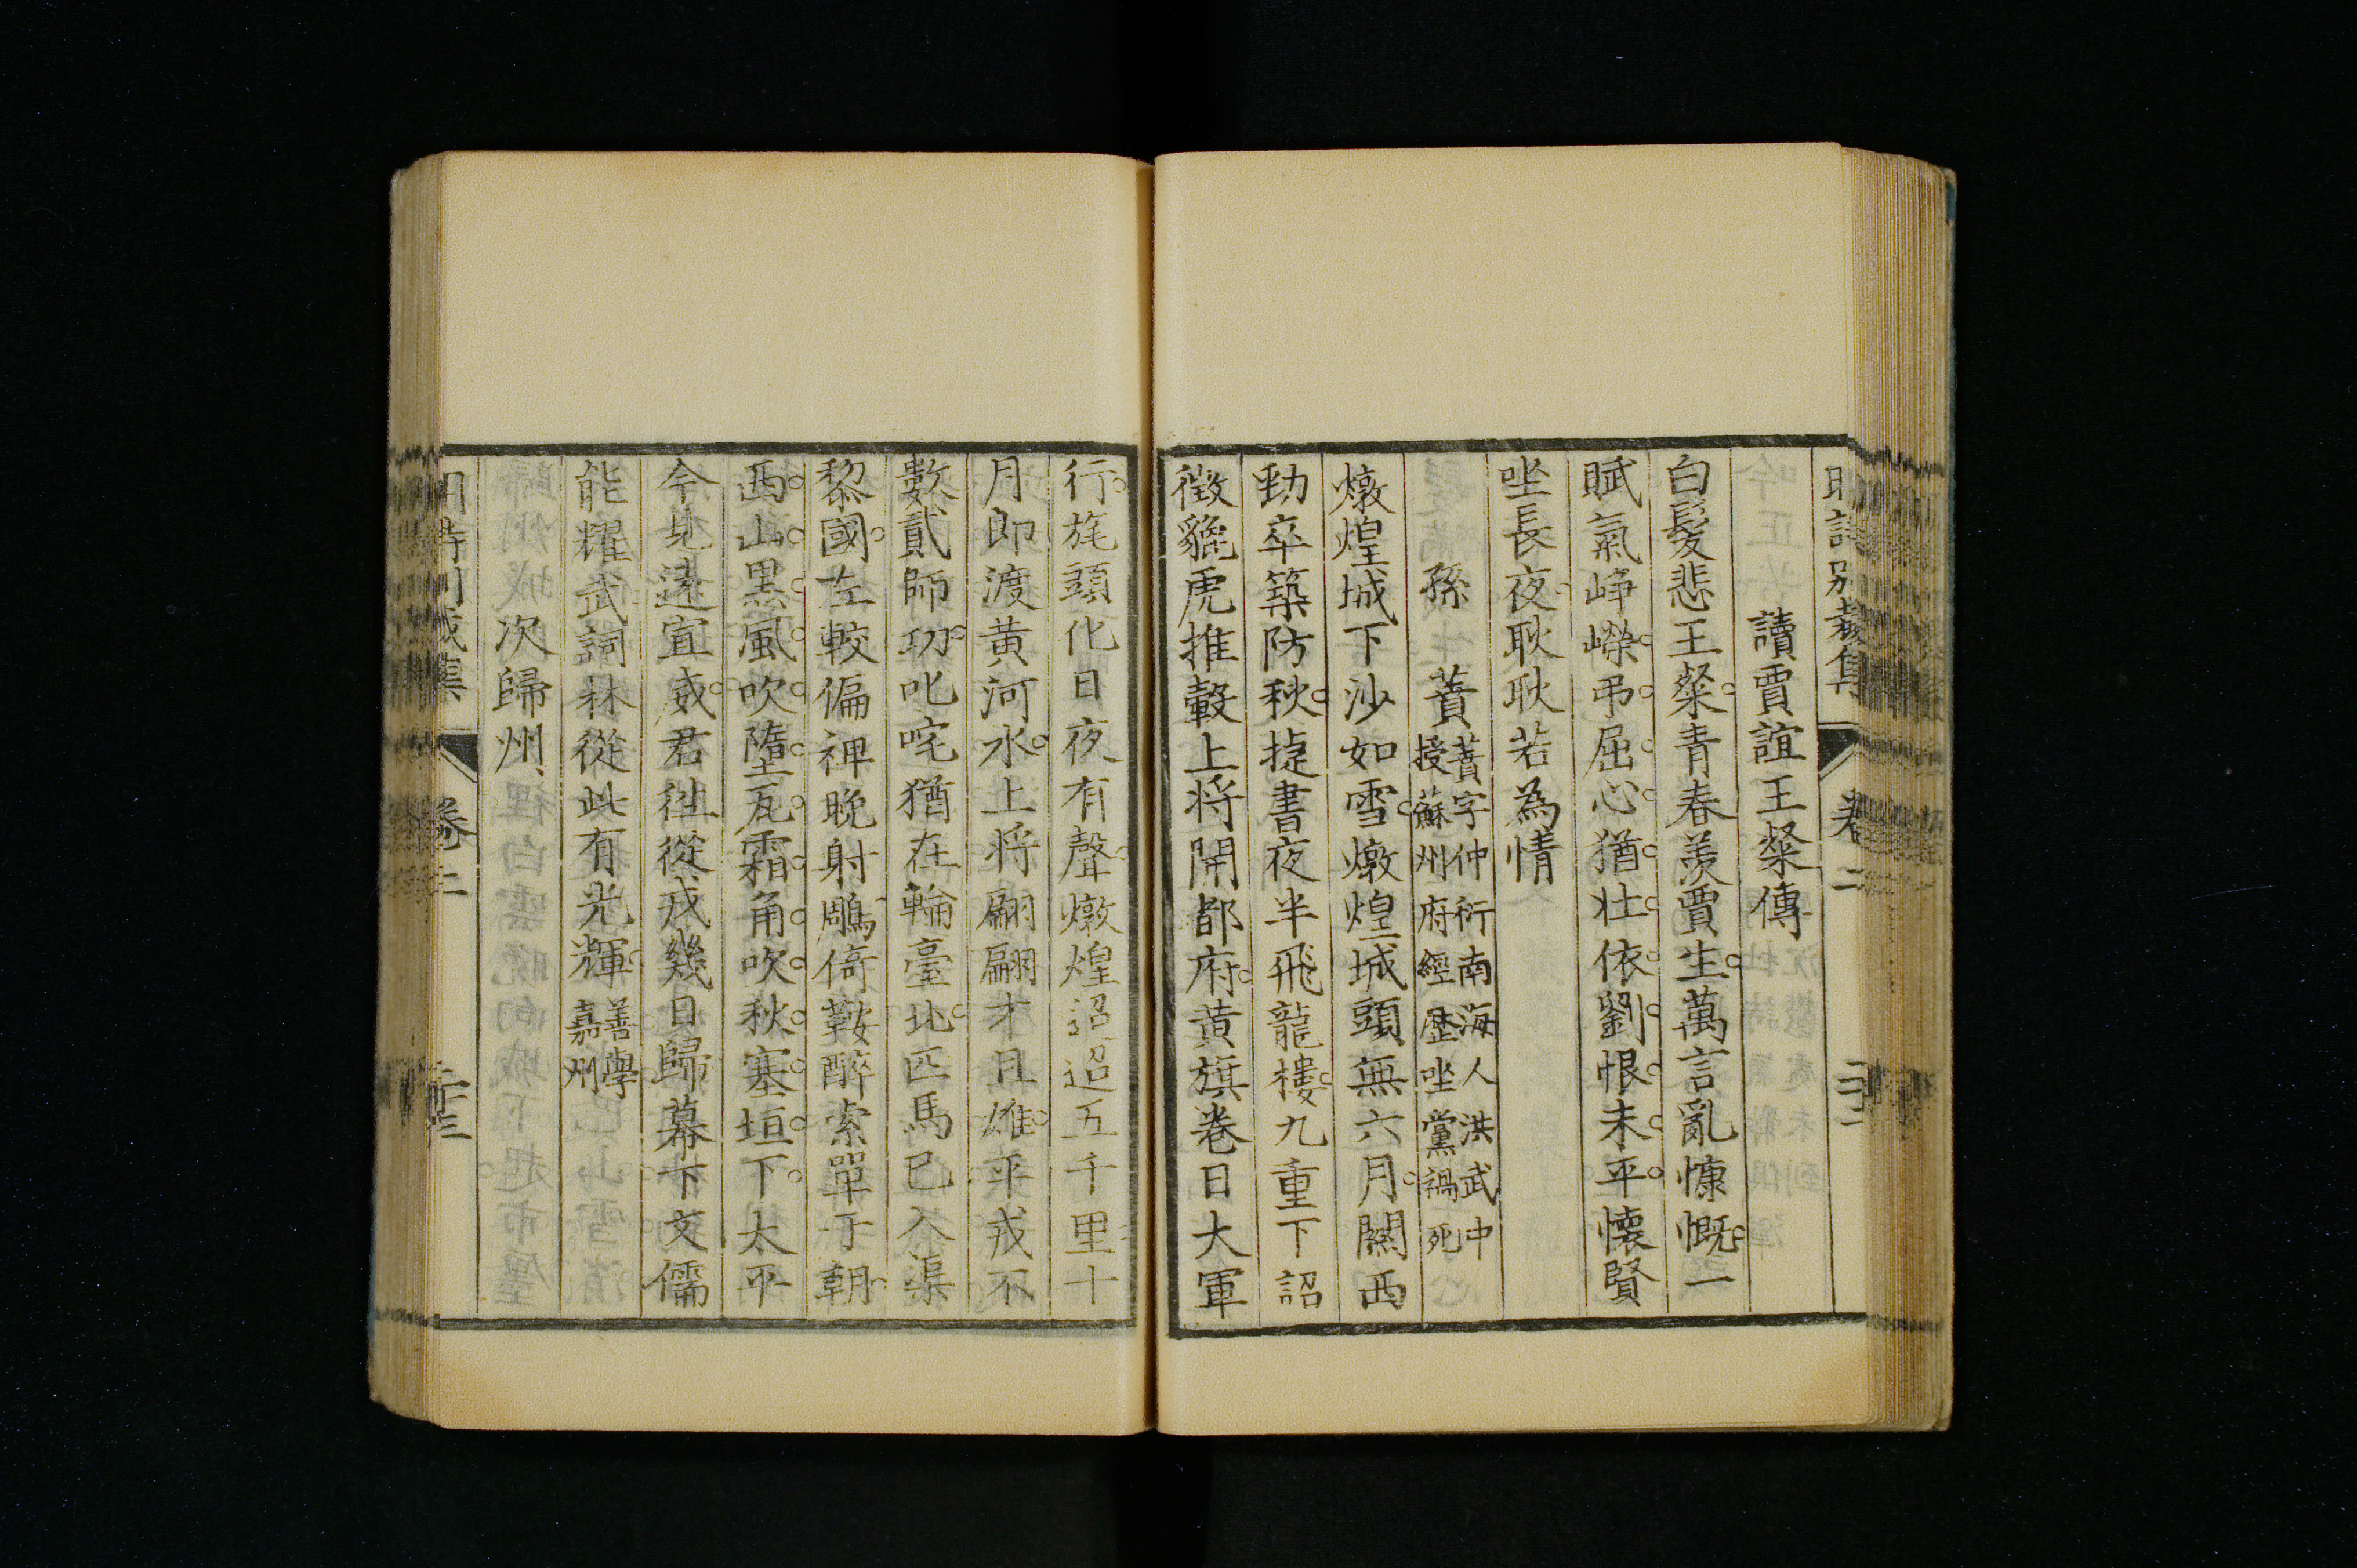 讀賈誼王粲傳
白髮悲王粲青春羨賈生萬言亂慷慨一
賦氣崢嶸弔屈心猶壯依劉恨未平懷賢
坐長夜耿耿若為情
孫蕡蕡字仲衍南海人洪武中
授蘇州府經歷坐黨禍死
燉煌城下沙如雪燉煌城頭無六月關西
勁卒築防秋捷書夜半飛龍樓九重下詔
徵貔虎推轂上將開都府黃旗卷日大軍
行旄頭化日夜有聲燉煌迢迢五千里十
月即渡黃河水上將翩翩才且雄平戎不
數貳師功叱咤猶在輪臺北匹馬已入渠
黎國左較偏裨晚射鵰倚鞍醉索單于朝
西山黑風吹墮瓦霜角吹秋塞垣下太平
今見遠宣威君徃從戎幾日歸幕下文儒
能耀武詞林從此有光輝善學
嘉州
次歸州
卷二